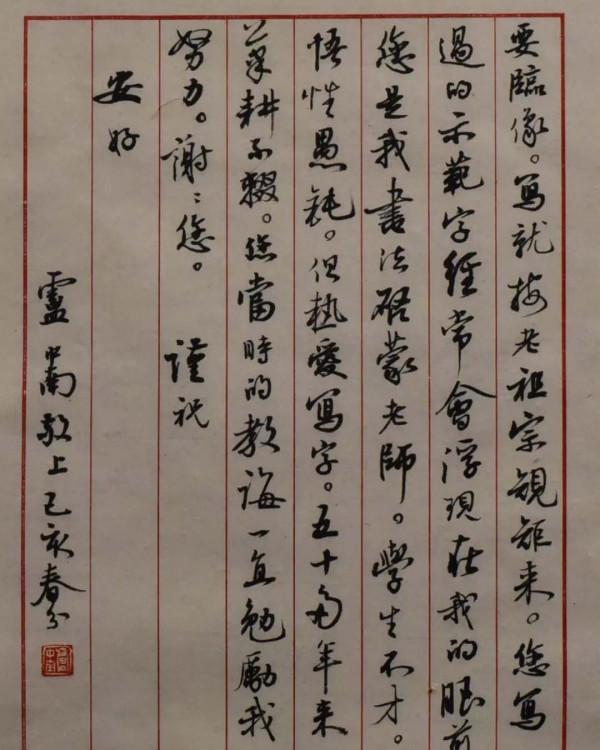 要臨像。寫就按老祖宗規矩来。您寫
過的示範字經常會浮現在我的眼前
您是我書法啓蒙老師。學生不才。
悟性愚鈍。但熱愛寫字。五十多年来
筆耕不輟。您當時的教誨一直勉勵我
努力。謝〻您。 謹祝
安好
盧中南敬上己亥春分